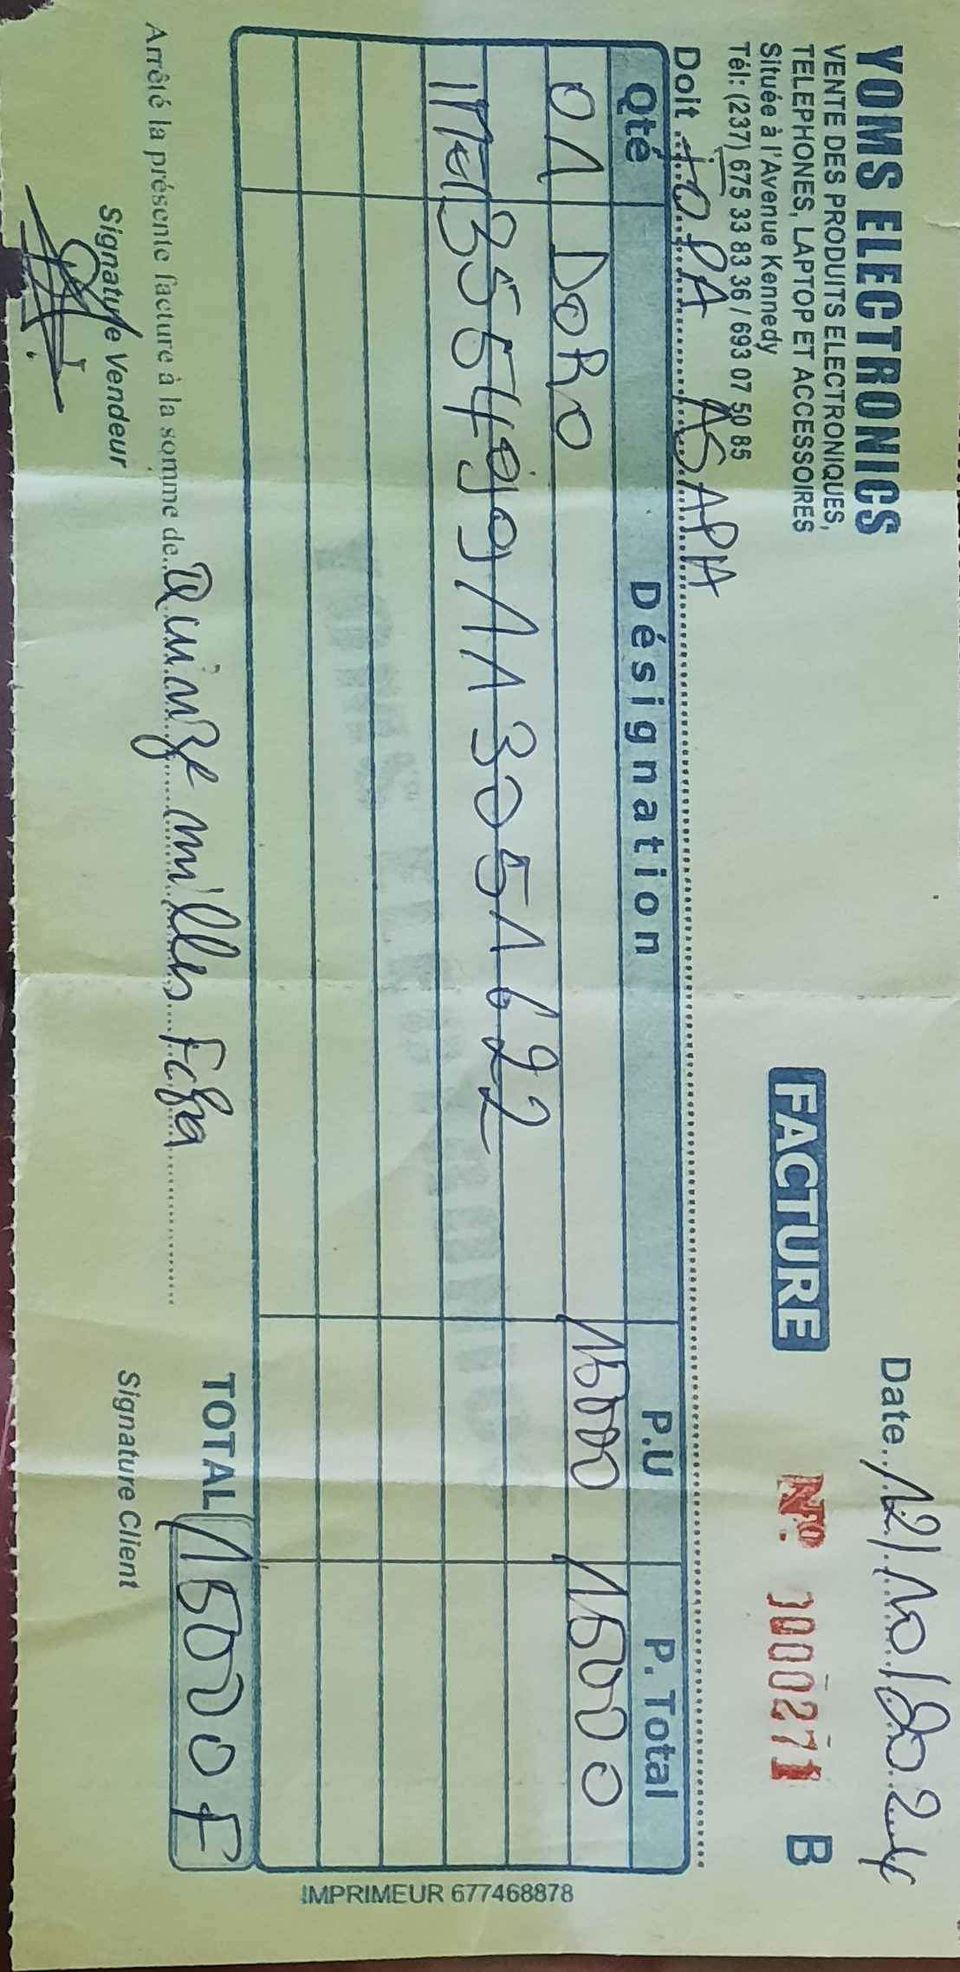 YOMS ELECTRONICS
VENTE DES PRODUITS ELECTRONIQUES,
TELEPHONES, LAPTOP ET ACCESSOIRES
Située à l'Avenue Kennedy
Tél: (237) 675 33 83 36 / 693 07 50 85
Date 12/10/2024
FACTURE
N° 0000271 B
Doit TOPA ASAPH
Qté Désignation P.U P. Total
01 DORO 15000 15000
355499113051622
TOTAL 15000 F
Arrêté la présente facture à la somme de Quinze milles Fcfa
Signature Vendeur Signature Client
IMPRIMEUR 677468878